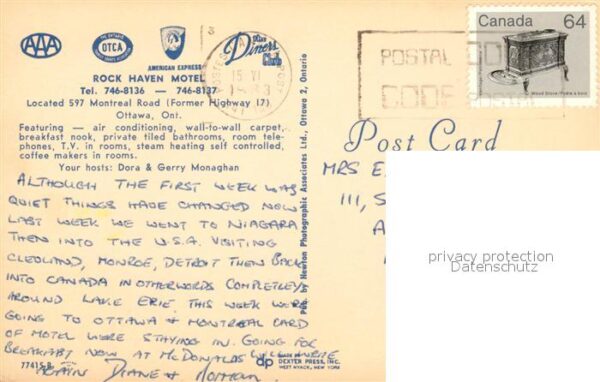 AAA
THE ONTARIO
OTCA
AMERICAN EXPRESS
The Diners' Club
ROCK HAVEN MOTEL
Tel. 746-8136 — 746-8137
Located 597 Montreal Road (Former Highway 17)
Ottawa, Ont.
Featuring — air conditioning, wall-to-wall carpet,
breakfast nook, private tiled bathrooms, room tele-
phones, T.V. in rooms, steam heating self controlled,
coffee makers in rooms.
Your hosts: Dora & Gerry Monaghan
ALTHOUGH THE FIRST WEEK WAS
QUIET THINGS HAVE CHANGED NOW
LAST WEEK WE WENT TO NIAGARA
THEN INTO THE U.S.A. VISITING
CLEOLAND, MONROE, DETROIT THEN BACK
INTO CANADA IN OTHERWORDS COMPLETLEY
AROUND LAKE ERIE. THIS WEEK WERE
GOING TO OTTAWA + MONTREAL CARD
OF MOTEL WERE STAYING IN. GOING FOR
BREAKFAST NOW AT McDONALDS WILL WRITE
AGAIN DIANE + NORMAN.
77415-B
Pub. by Newton Photographic Associates Ltd., Ottawa 2, Ontario
dp
MADE BY
DEXTER PRESS, INC.
WEST NYACK, NEW YORK
15 VI
POSTAL CODE
CODE POSTAL
Canada 64
Wood Stove
Post Card
MRS E
111, S
A
privacy protection
Datenschutz